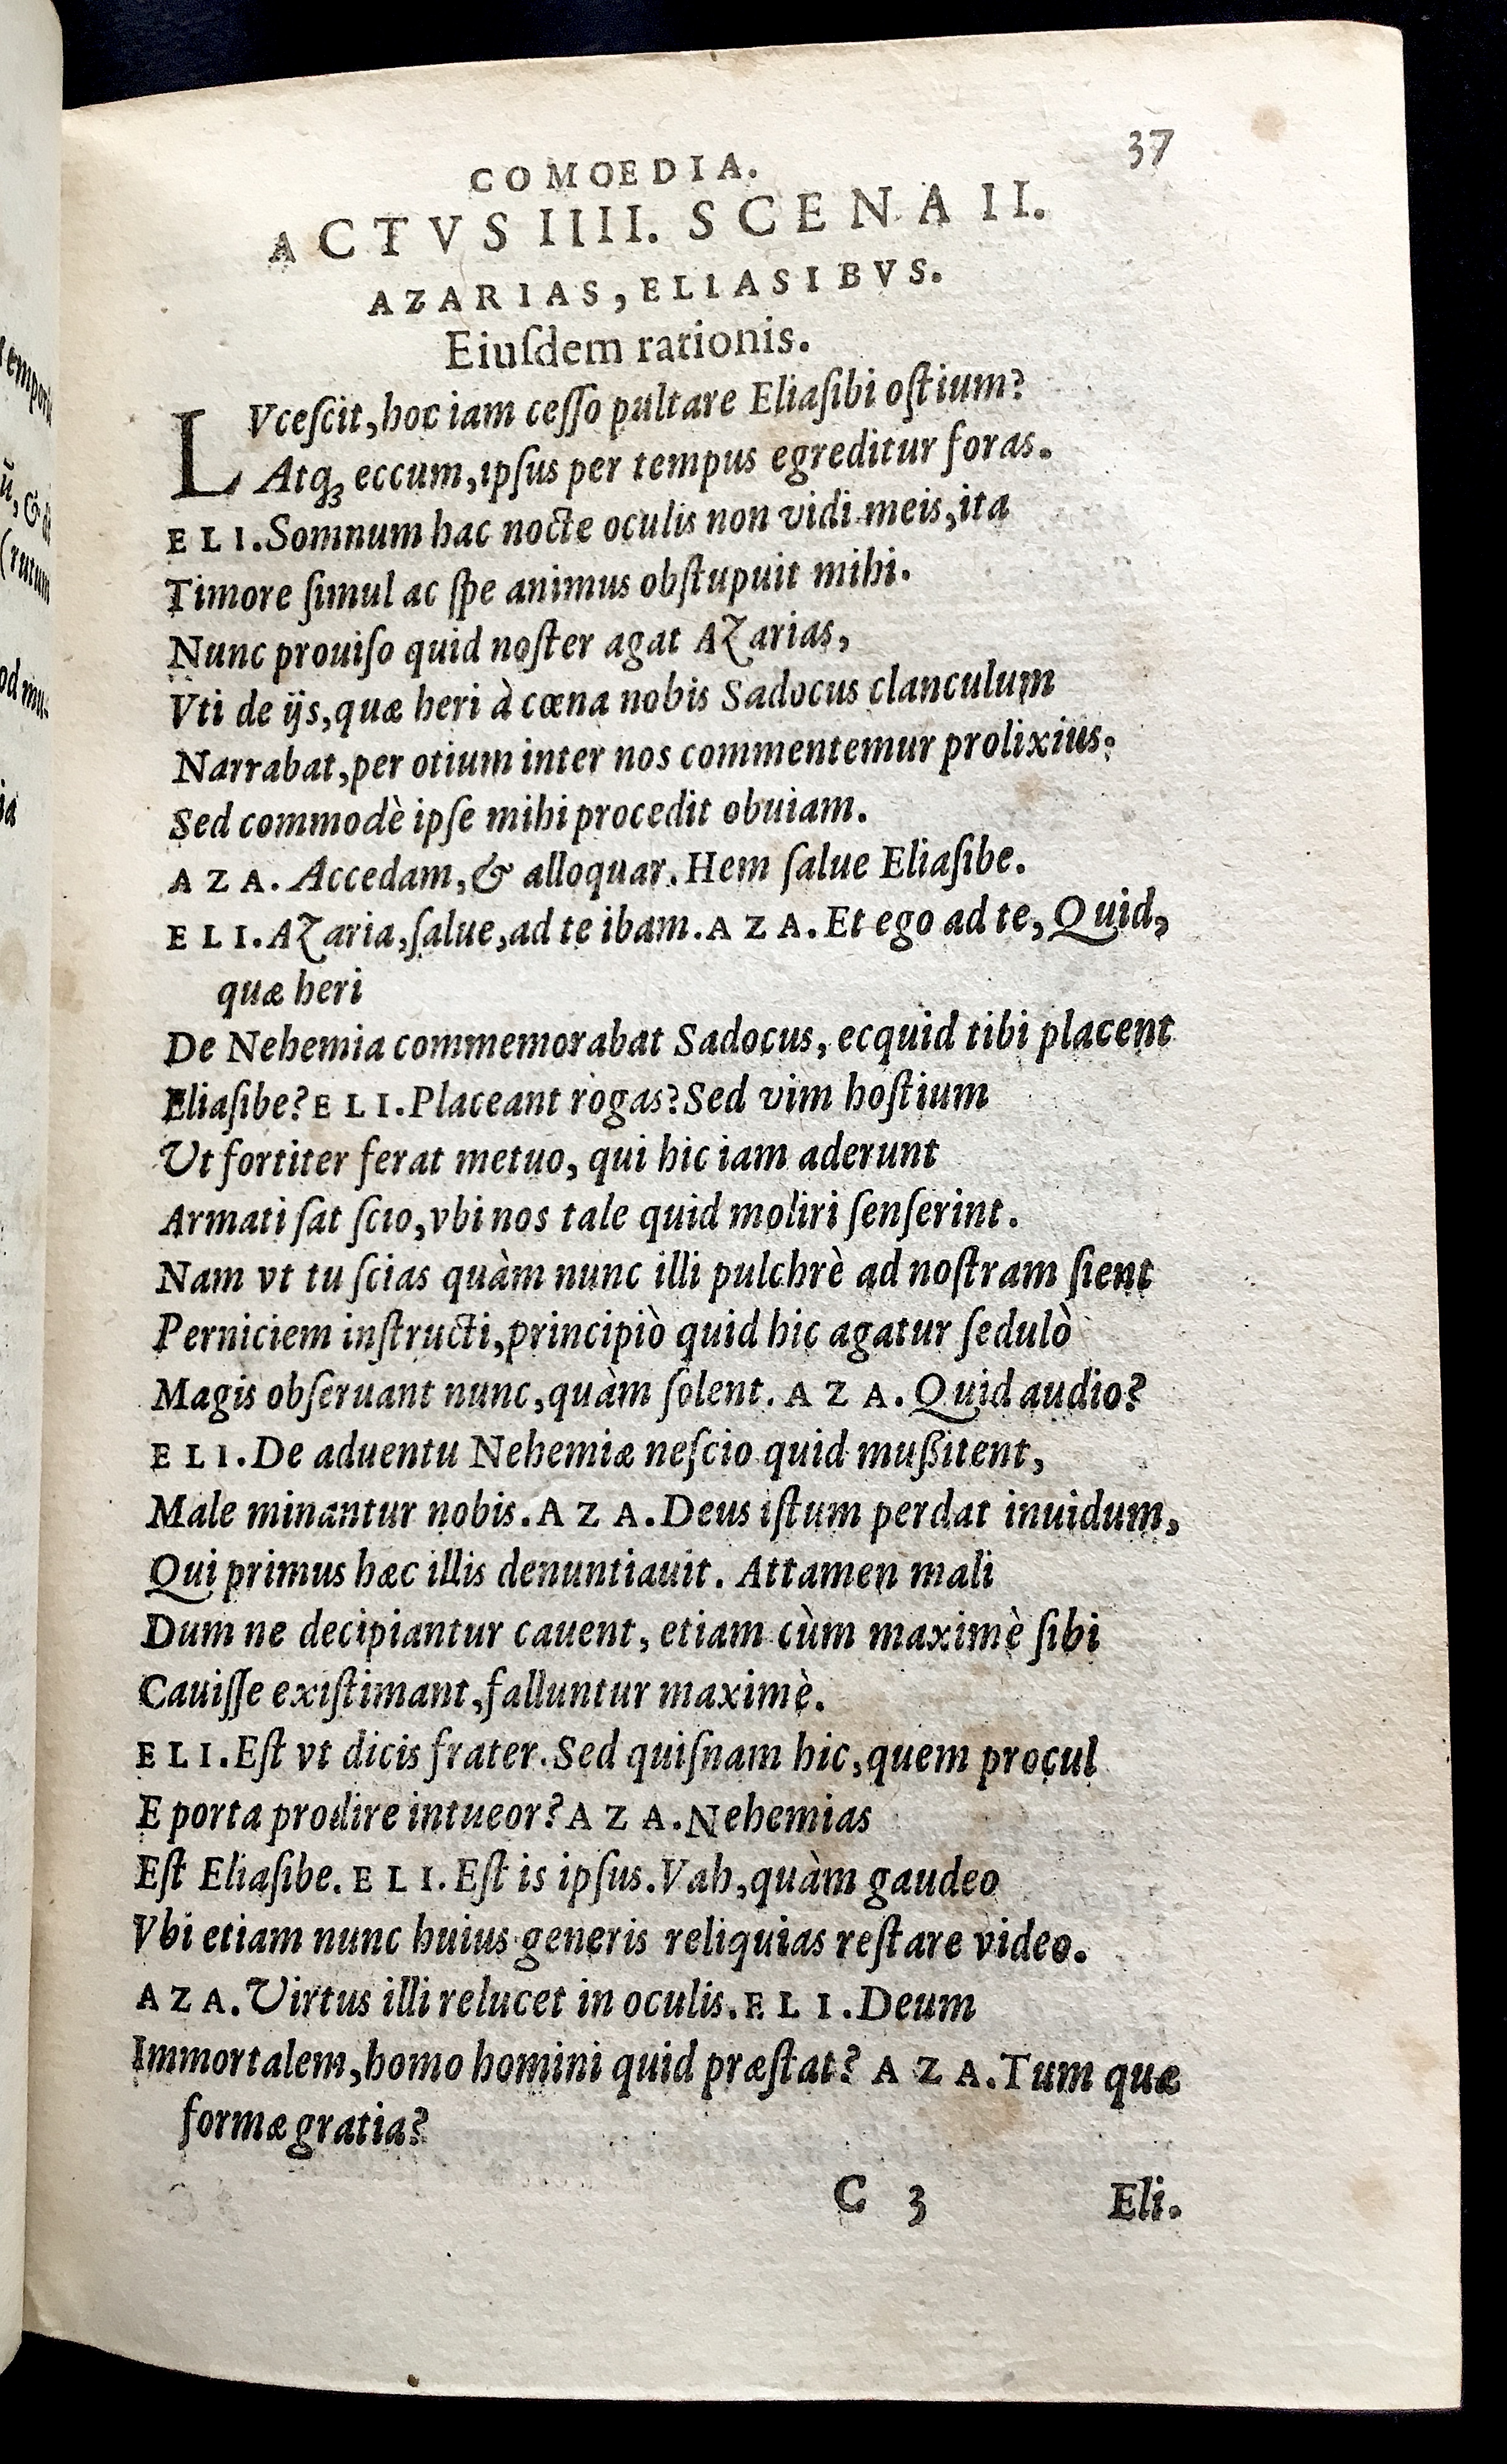 COMOEDIA. 37
ACTVS IIII. SCENA II.
AZARIAS, ELIASIBVS.
Eiuſdem rationis.
LVceſcit, hoc iam ceſſo pultare Eliaſibi oſtium?
Atq; eccum, ipſus per tempus egreditur foras.
ELI. Somnum hac nocte oculis non vidi meis, ita
Timore ſimul ac ſpe animus obſtupuit mihi.
Nunc prouiſo quid noſter agat Azarias,
Vti de ijs, quæ heri à cœna nobis Sadocus clanculum
Narrabat, per otium inter nos commentemur prolixius.
Sed commodè ipſe mihi procedit obuiam.
AZA. Accedam, & alloquar. Hem ſalue Eliaſibe.
ELI. Azaria, ſalue, ad te ibam. AZA. Et ego ad te, Quid,
quæ heri
De Nehemia commemorabat Sadocus, ecquid tibi placent
Eliaſibe? ELI. Placeant rogas? Sed vim hoſtium
Ut fortiter ferat metuo, qui hic iam aderunt
Armati ſat ſcio, vbi nos tale quid moliri ſenſerint.
Nam vt tu ſcias quàm nunc illi pulchrè ad noſtram ſient
Perniciem inſtructi, principiò quid hic agatur ſedulò
Magis obſeruant nunc, quàm ſolent. AZA. Quid audio?
ELI. De aduentu Nehemiæ neſcio quid mußitent,
Male minantur nobis. AZA. Deus iſtum perdat inuidum,
Qui primus hæc illis denuntiauit. Attamen mali
Dum ne decipiantur cauent, etiam cùm maximè ſibi
Cauiſſe exiſtimant, falluntur maximè.
ELI. Eſt vt dicis frater. Sed quiſnam hic, quem procul
E porta prodire intueor? AZA. Nehemias
Eſt Eliaſibe. ELI. Eſt is ipſus. Vah, quàm gaudeo
Vbi etiam nunc huius generis reliquias reſtare video.
AZA. Virtus illi relucet in oculis. ELI. Deum
Immortalem, homo homini quid præſtat? AZA. Tum quæ
formæ gratia?
C 3 Eli.